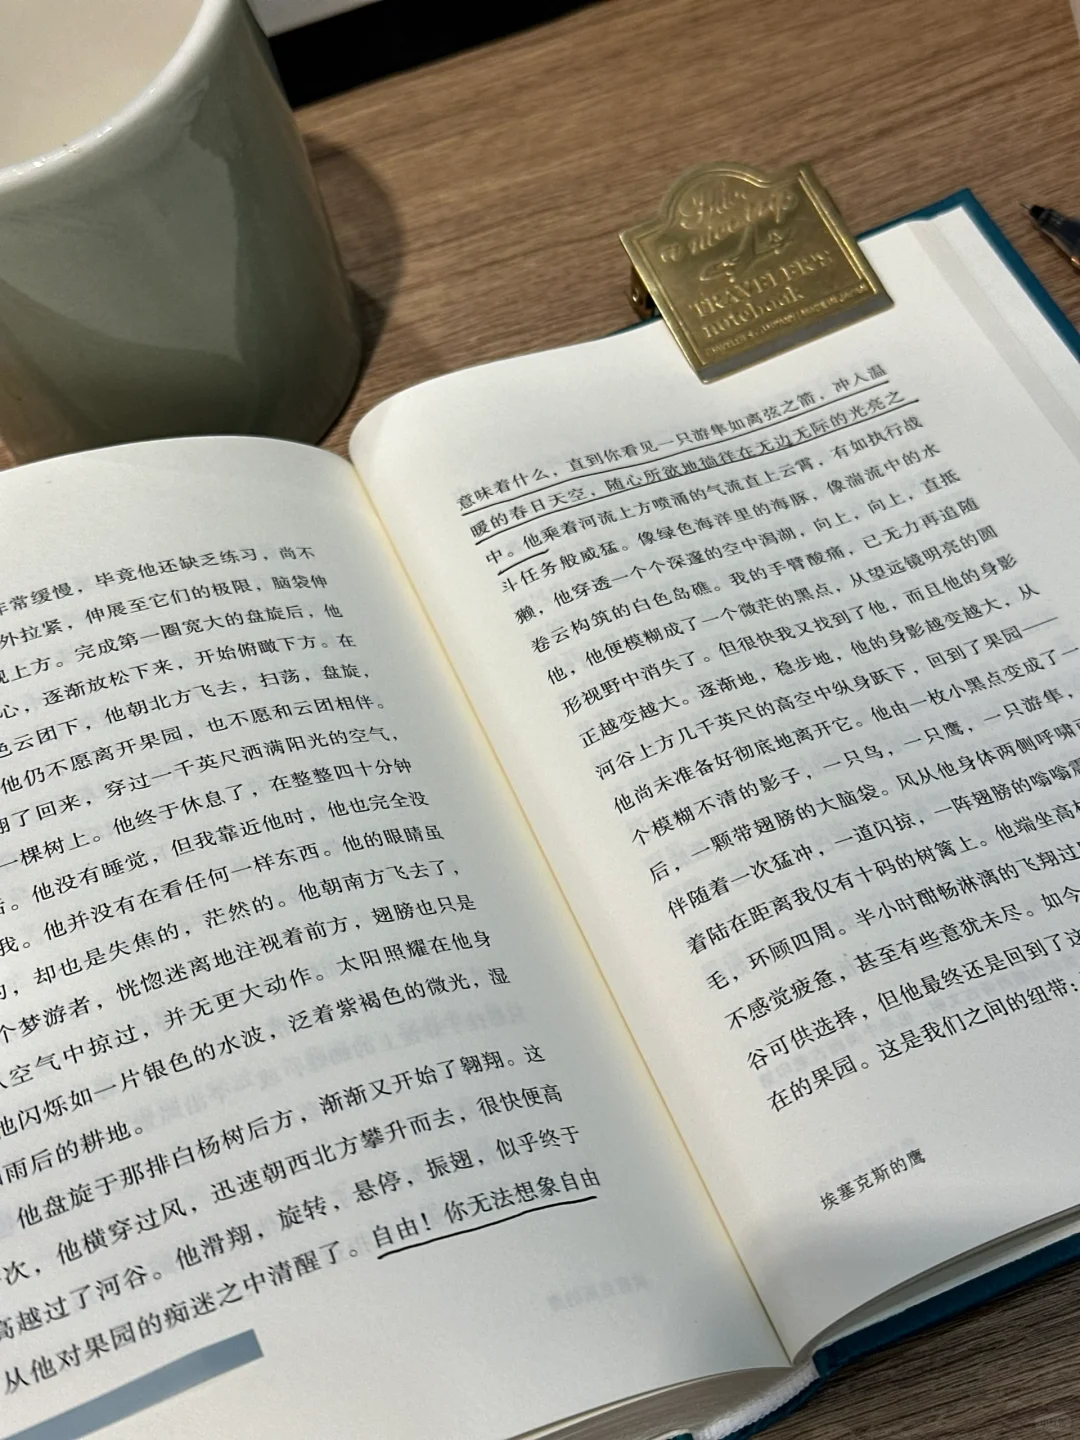 非常缓慢，毕竟他还缺乏练习，尚不
外拉紧，伸展至它们的极限，脑袋伸
视上方。完成第一圈宽大的盘旋后，他
心，逐渐放松下来，开始俯瞰下方。在
色云团下，他朝北方飞去，扫荡，盘旋，
他仍不愿离开果园，也不愿和云团相伴。
翔了回来，穿过一千英尺洒满阳光的空气，
一棵树上。他终于休息了，在整整四十分钟
后。他没有睡觉，但我靠近他时，他也完全没
我。他并没有在看任何一样东西。他的眼睛虽
的，却也是失焦的，茫然的。他朝南方飞去了，
个梦游者，恍惚迷离地注视着前方，翅膀也只是
从空气中掠过，并无更大动作。太阳照耀在他身
他闪烁如一片银色的水波，泛着紫褐色的微光，湿
雨后的耕地。
他盘旋于那排白杨树后方，渐渐又开始了翱翔。这
次，他横穿过风，迅速朝西北方攀升而去，很快便高
高越过了河谷。他滑翔，旋转，悬停，振翅，似乎终于
从他对果园的痴迷之中清醒了。自由！你无法想象自由
The
TRAVELER'S
notebook
意味着什么，直到你看见一只游隼如离弦之箭，冲入温
暖的春日天空，随心所欲地徜徉在无边无际的光亮之
中。他乘着河流上方喷涌的气流直上云霄，有如执行战
斗任务般威猛。像绿色海洋里的海豚，像湍流中的水
獭，他穿透一个个深邃的空中潟湖，向上，向上，直抵
卷云构筑的白色岛礁。我的手臂酸痛，已无力再追随
他，他便模糊成了一个微茫的黑点，从望远镜明亮的圆
形视野中消失了。但很快我又找到了他，而且他的身影
正越变越大。逐渐地，稳步地，他的身影越变越大，从
河谷上方几千英尺的高空中纵身跃下，回到了果园——
他尚未准备好彻底地离开它。他由一枚小黑点变成了一
个模糊不清的影子，一只鸟，一只鹰，一只游隼，
后，一颗带翅膀的大脑袋。风从他身体两侧呼啸
伴随着一次猛冲，一道闪掠，一阵翅膀的嗡嗡
着陆在距离我仅有十码的树篱上。他端坐高
毛，环顾四周。半小时酣畅淋漓的飞翔过
不感觉疲惫，甚至有些意犹未尽。如今
谷可供选择，但他最终还是回到了这
在的果园。这是我们之间的纽带：
埃塞克斯的鹰